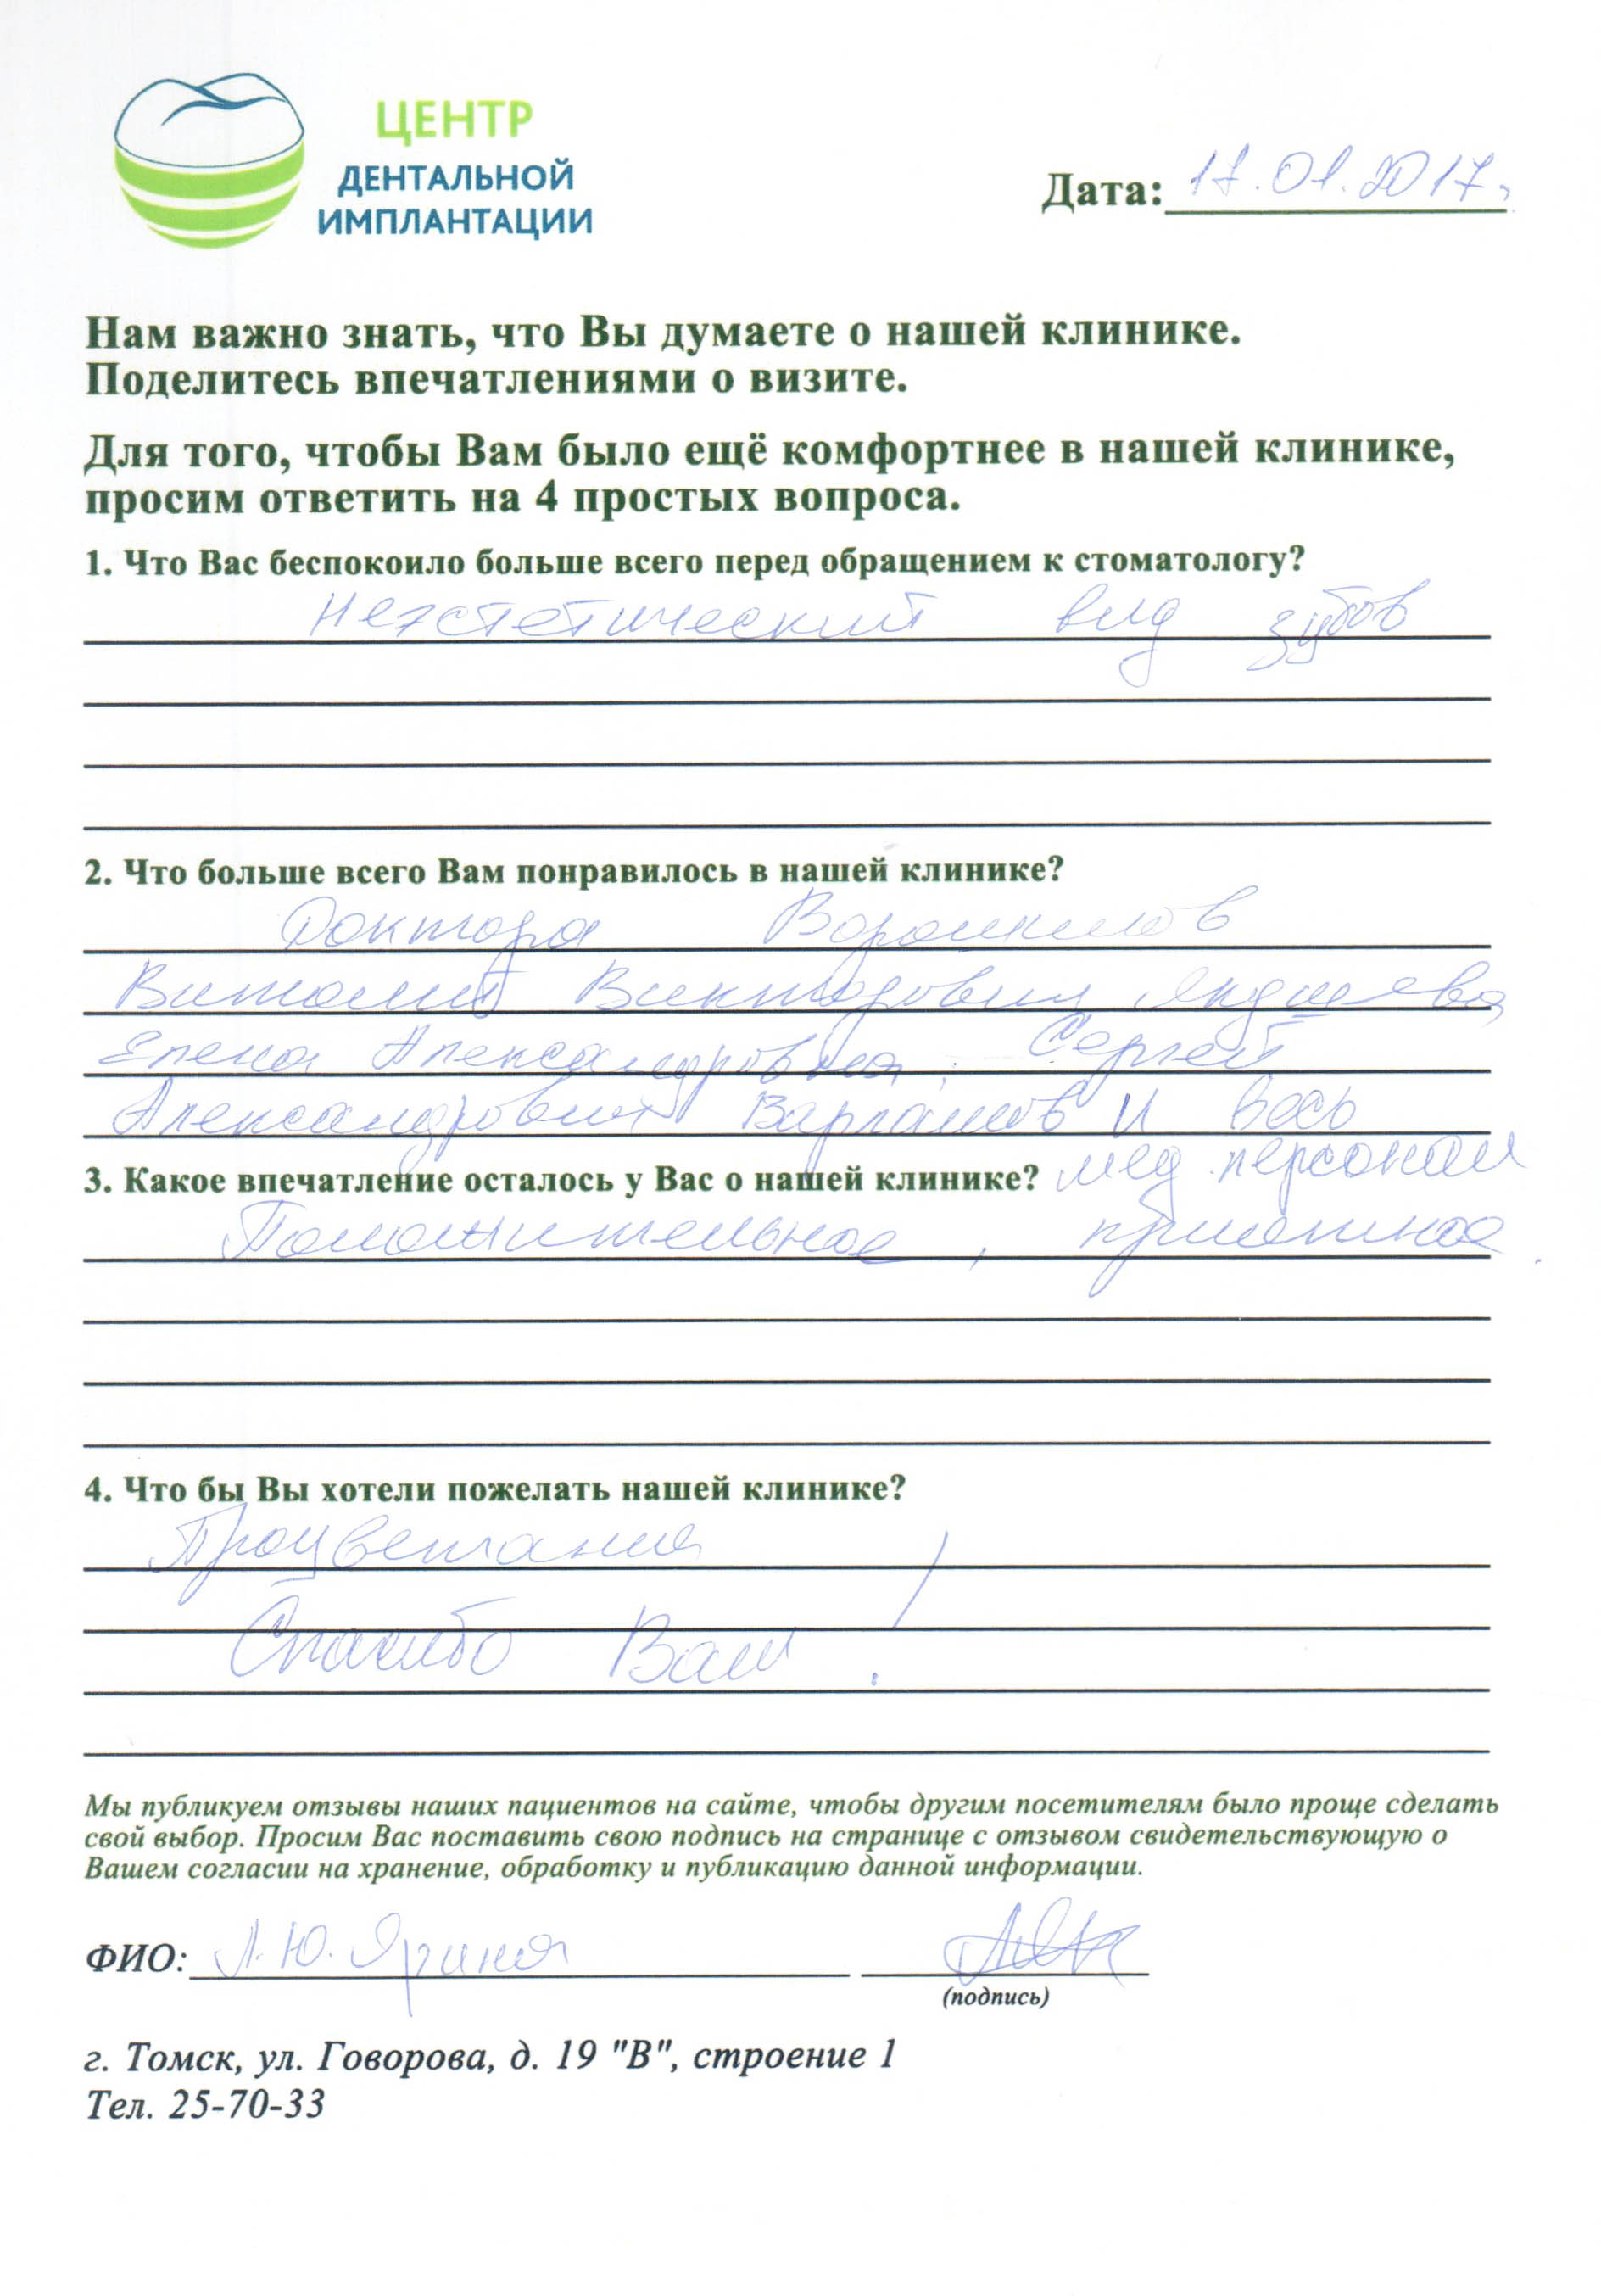 ЦЕНТР
ДЕНТАЛЬНОЙ
ИМПЛАНТАЦИИ
Дата: 17.01.2017г
Нам важно знать, что Вы думаете о нашей клинике.
Поделитесь впечатлениями о визите.
Для того, чтобы Вам было ещё комфортнее в нашей клинике,
просим ответить на 4 простых вопроса.
1. Что Вас беспокоило больше всего перед обращением к стоматологу?
Неэстетический вид зубов
2. Что больше всего Вам понравилось в нашей клинике?
Доктора
Виталий Викторович
Елена Александровна, Сергей
Александрович Варламов и весь
мед. персонал
3. Какое впечатление осталось у Вас о нашей клинике?
Положительное, приятное.
4. Что бы Вы хотели пожелать нашей клинике?
Процветания
Спасибо Вам!
Мы публикуем отзывы наших пациентов на сайте, чтобы другим посетителям было проще сделать
свой выбор. Просим Вас поставить свою подпись на странице с отзывом свидетельствующую о
Вашем согласии на хранение, обработку и публикацию данной информации.
ФИО: Л.Ю. Ярина
(подпись)
г. Томск, ул. Говорова, д. 19 "В", строение 1
Тел. 25-70-33